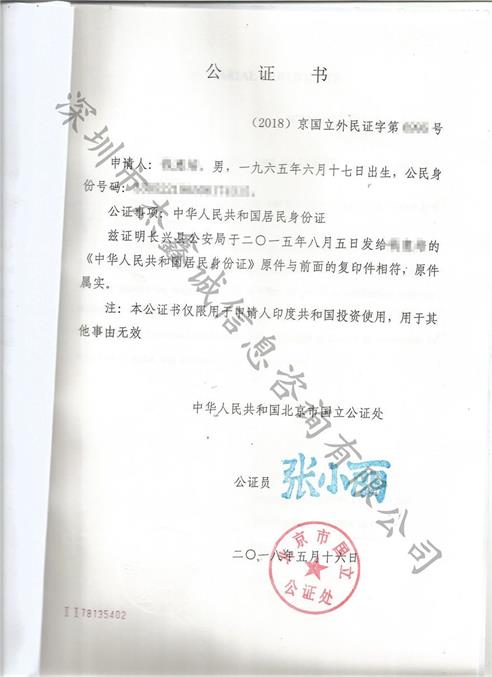 公证书
（2018）京国立外民证字第 号
申请人： ，男，一九六五年六月十七日出生，公民身
份号码： 。
公证事项：中华人民共和国居民身份证
兹证明长兴县公安局于二〇一五年八月五日发给 的
《中华人民共和国居民身份证》原件与前面的复印件相符，原件
属实。
注：本公证书仅限用于申请人印度共和国投资使用，用于其
他事由无效
中华人民共和国北京市国立公证处
公证员 张小丽
二〇一八年五月十六日
北京市国立
公证处
ⅡⅠ78135402
深圳市杰鑫诚信息咨询有限公司